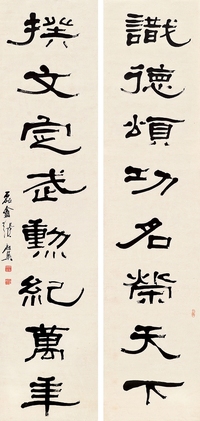 識德頌功名榮天下
撰文定武勳紀萬年